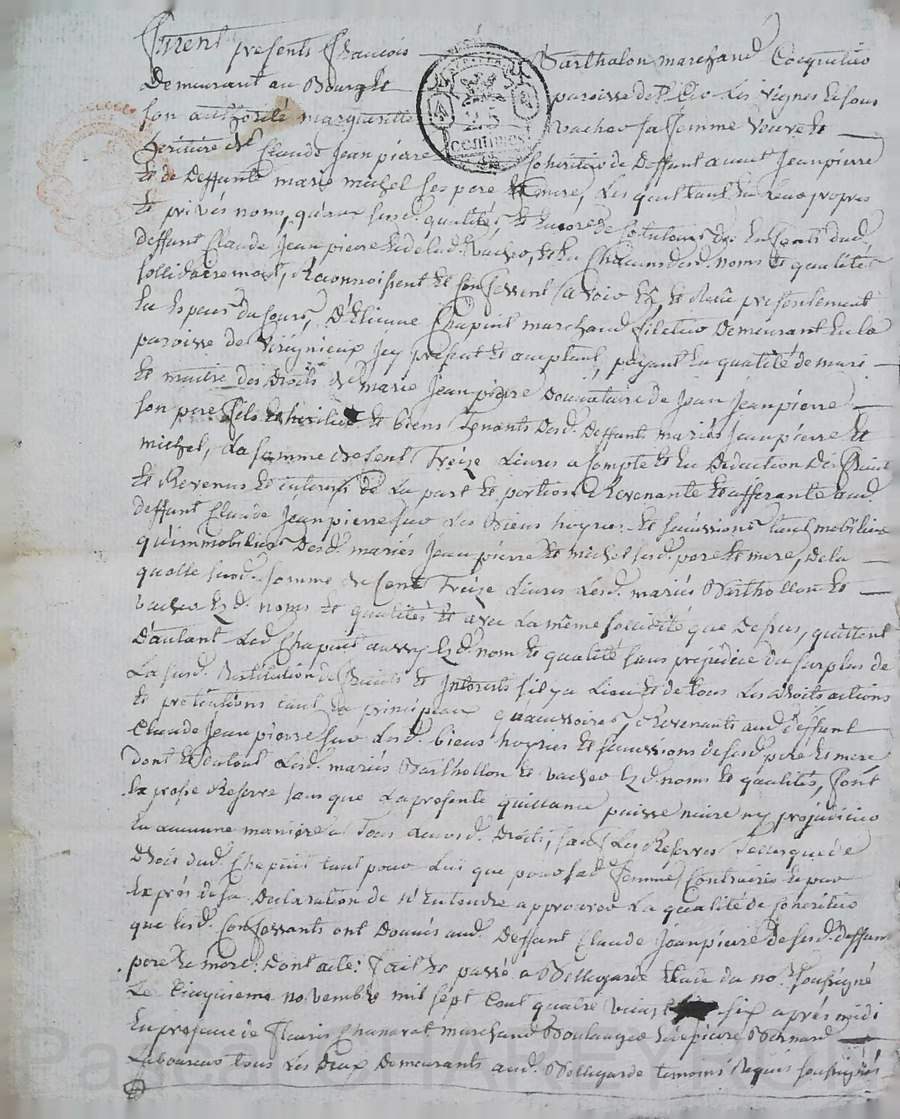 furent presents François Barthalon marchand Coquetier
Demeurant au Bourg et paroisse de St Cir les Vignes et sous
son authorité marguerite Vacher sa femme veuve et
heritiere de Claude Jeanpierre coheritier de Deffunt Jeanpierre
25
centimes
et de Deffunte marie michel ses pere et mere, lesquels tant en leurs propres
et privés noms, qu'aux susd. qualités, et encore de tuteurs des enfants dud.
deffunt Claude Jeanpierre et de lad. Vacher, et en chacun desd. noms et qualités
sollidairement, Reconnoissent et Confessent avoir Eu et Reçu presentement
en Especes du Cours, D'Etienne Chapuit marchand filetier Demeurant en la
paroisse de Virignieux Jcy present et acceptant, payant en qualité de mari
et maitre des Droits de marie Jeanpierre Donnataire de Jean Jeanpierre
son pere fils et heritier et biens tenants desd. deffunts mariés Jeanpierre et
michel, La somme de Cent Treize Livres a Compte et en Deduction des fruits
et Revenus et interets de La part et portion Revenante et afferante aud.
deffunt Claude Jeanpierre sur Les biens hoyries et successions tant mobiliers
qu'immobiliers desd. mariés Jeanpierre et michel susd. pere et mere, De la
quelle susd. somme de Cent Treize Livres Lesd. mariés Barthollon et
Vacher Ezd. noms et qualités et avec La même sollidité que Depus, quittent
D'autant Led. Chapuit aussy Ezd. nom et qualité sans prejudice du surplus de
La susd. Restitution de fruits et Interests s'il y a Lieu et de tous Les droits actions
et pretentions tant en principeau qu'accessoires, Revenants aud. deffunt
Claude Jeanpierre sur Lesd. biens hoyries et successions desesd. pere et mere
dont et du tout Lesd. mariés Barthollon et Vacher Ezd. noms et qualités, font
Expresse Reserve sans que La presente quittance puisse nuire ny prejudicier
En aucunne maniere a Tous auxsd. Droits, sauf Les Reserves
Droit dud. Chapuit tant pour Lui que pour sad. femme Contraires et par
Exprés de sa Declaration de N'Entendre approuver La qualité de coheritier
que Lesd. Confessants ont Donnés aud. Deffunt Claude Jeanpierre desesd. deffunts
pere et mere: Dont acte: fait et passé a Bellegarde Etude du no.re soussigné
Le Cinquieme novembre mil sept Cent quatre vingt six après midi
En presence de fleuris Chanavat marchand Boulanger et de pierre Bernard
Laboureur tous Les Deux Demeurants aud. Bellegarde temoins Requis soussignés
Pascal CHAREYRON